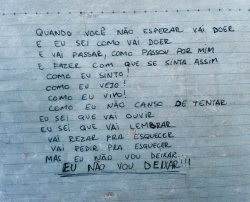 QUANDO VOCÊ NÃO ESPERAR VAI DOER
E EU SEI COMO VAI DOER
E VAI PASSAR, COMO PASSOU POR MIM
E FAZER COM QUE SE SINTA ASSIM
COMO EU SINTO!
COMO EU VEJO!
COMO EU VIVO!
COMO EU NÃO CANSO DE TENTAR
EU SEI QUE VAI OUVIR
EU SEI QUE VAI LEMBRAR
VAI REZAR PRA ESQUECER
VAI PEDIR PRA ESQUECER
MAS EU NÃO VOU DEIXAR...
EU NÃO VOU DEIXAR!!!